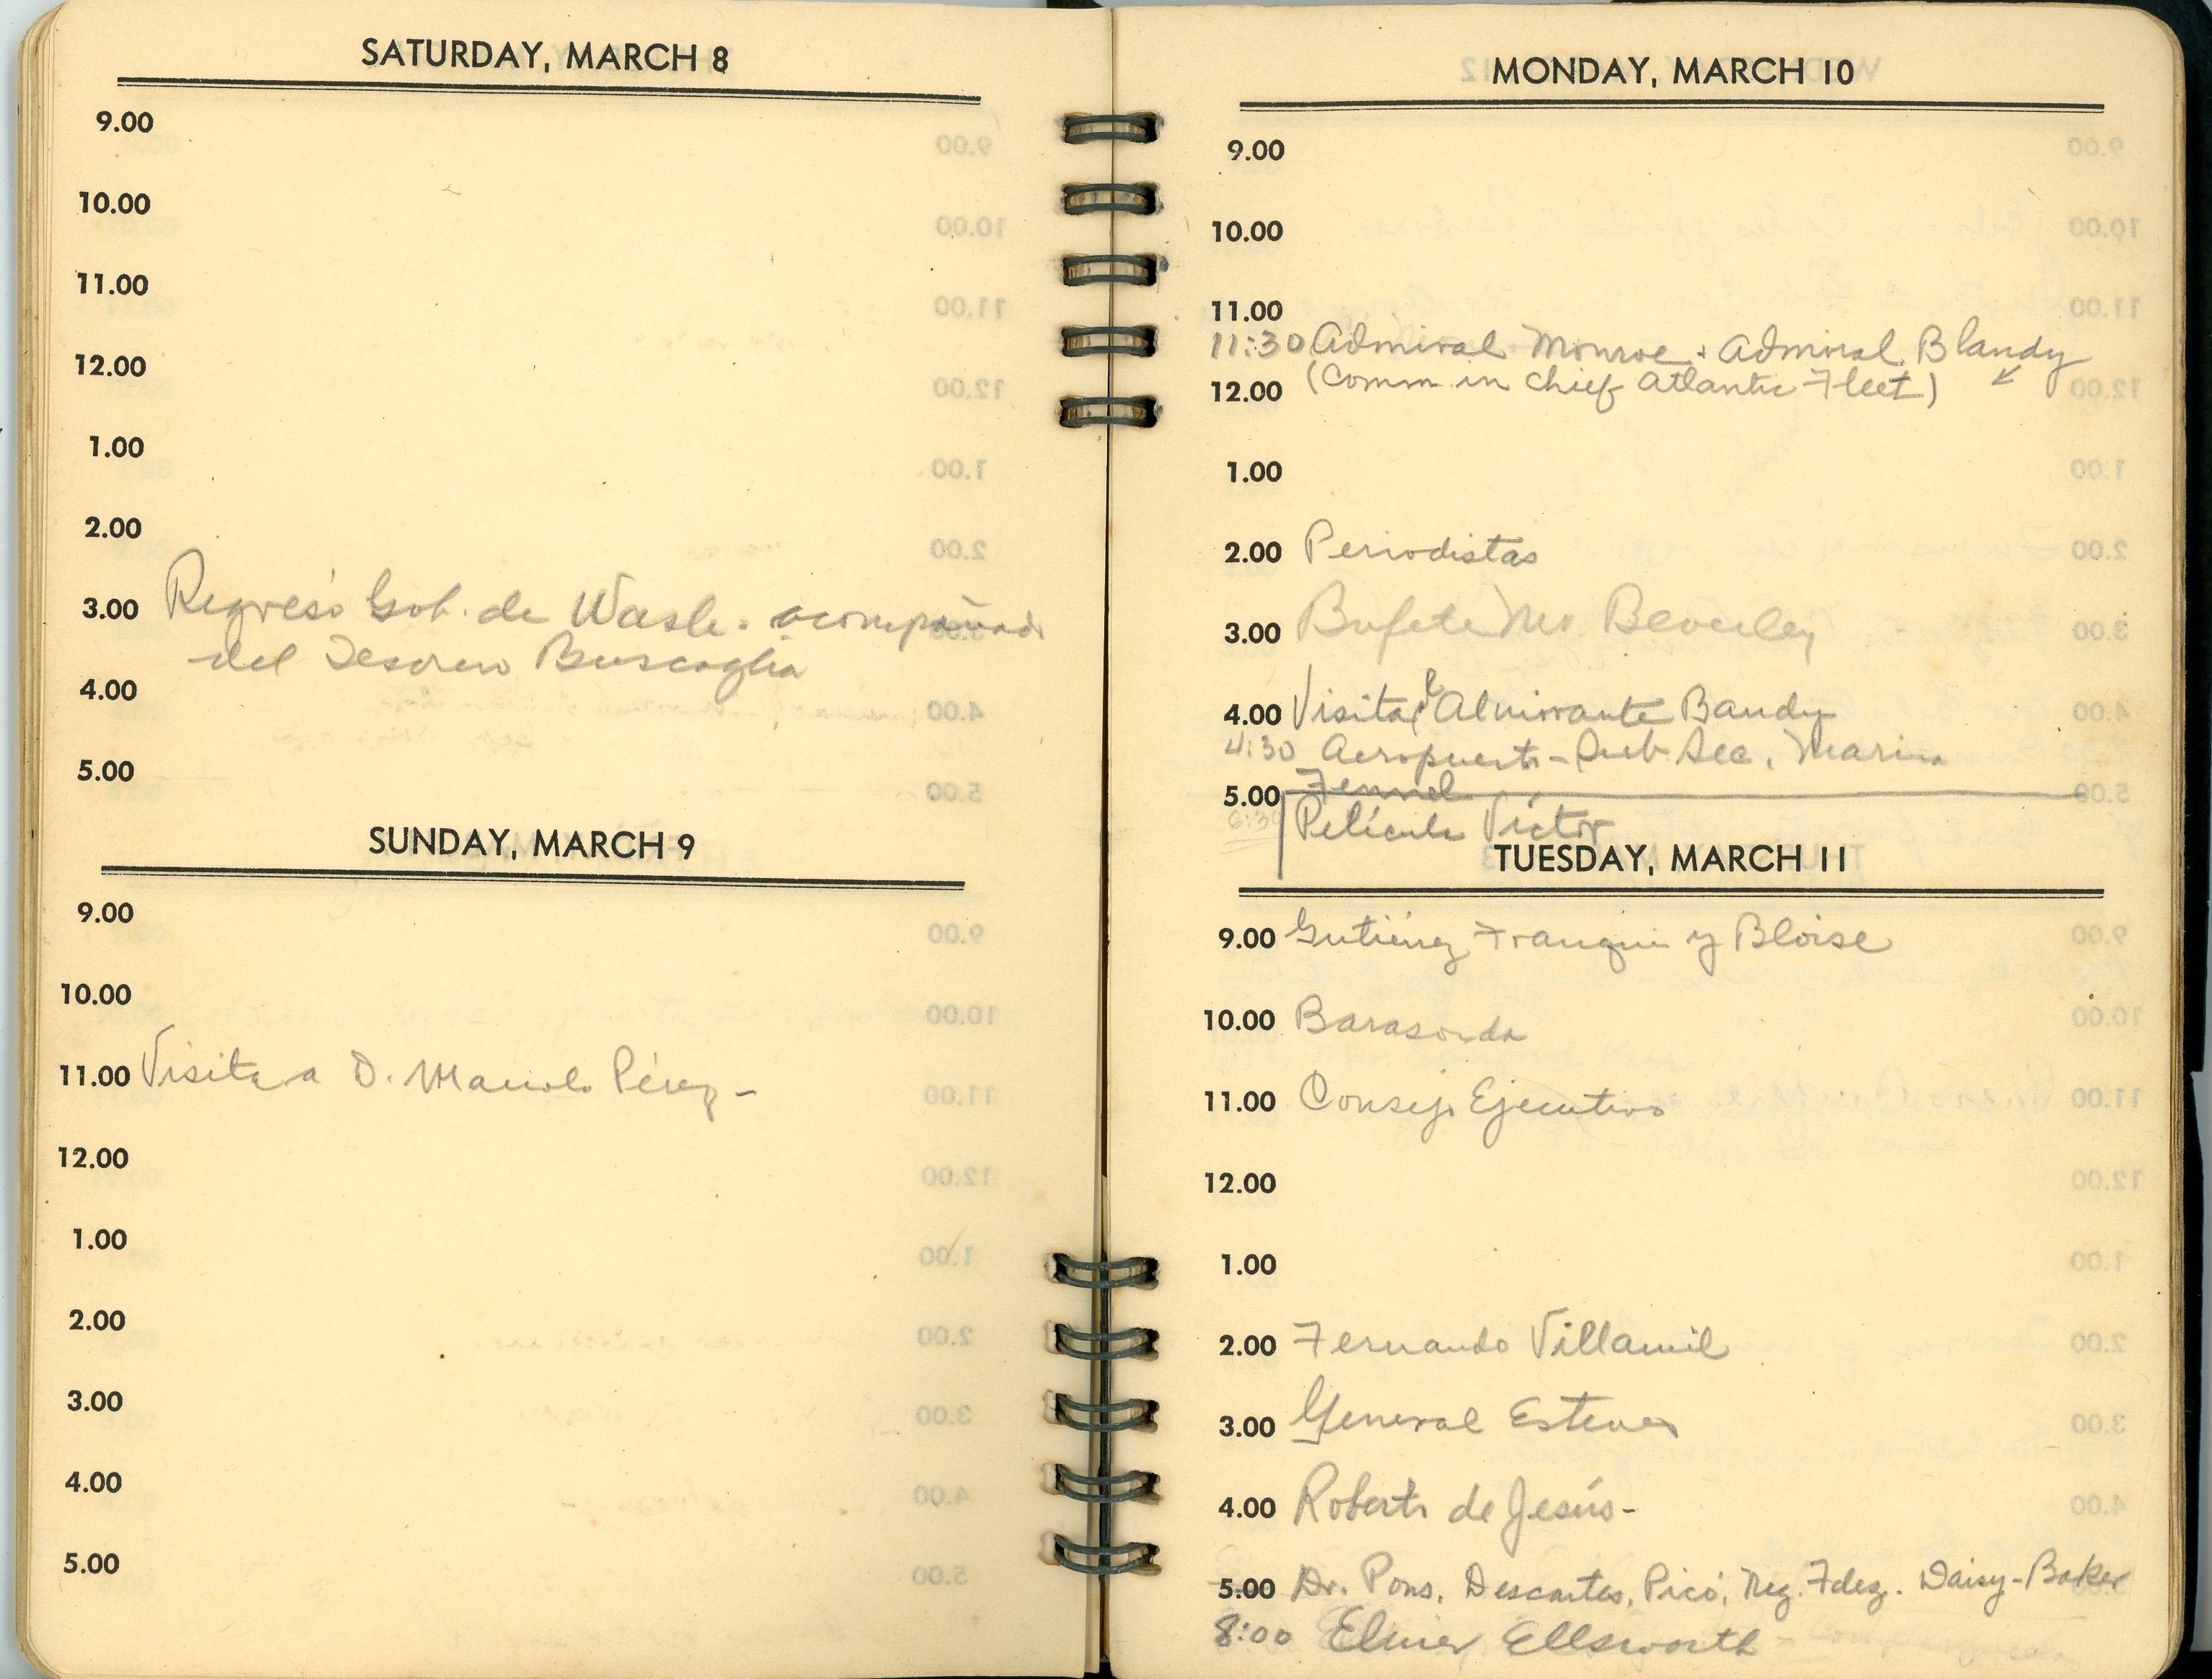 SATURDAY, MARCH 8
9.00
10.00
11.00
12.00
1.00
2.00
3.00 Regresó Gob. de Wash. acompañado
del Tesorero Buscaglia
4.00
5.00
SUNDAY, MARCH 9
9.00
10.00
11.00 Visita a D. Manolo Pérez -
12.00
1.00
2.00
3.00
4.00
5.00
MONDAY, MARCH 10
9.00
10.00
11.00
11:30 Admiral Monroe & Admiral Blandy
12.00 (Comm in chief Atlantic Fleet)
1.00
2.00 Periodistas
3.00 Bufete Mr Beverley
4.00 Visita Almirante Bandy
4:30 Aeropuerto - Sub Sec. Marina
5.00
6:30 Película Víctor
TUESDAY, MARCH 11
9.00 Gutiérrez Franqui y Bloise
10.00 Barasorda
11.00 Consejo Ejecutivo
12.00
1.00
2.00 Fernando Villamil
3.00 General Esteves
4.00 Roberto de Jesús-
5.00 Dr. Pons, Descartes, Picó, Fdez. Daisy-Baker
8:00 Elmer Ellsworth